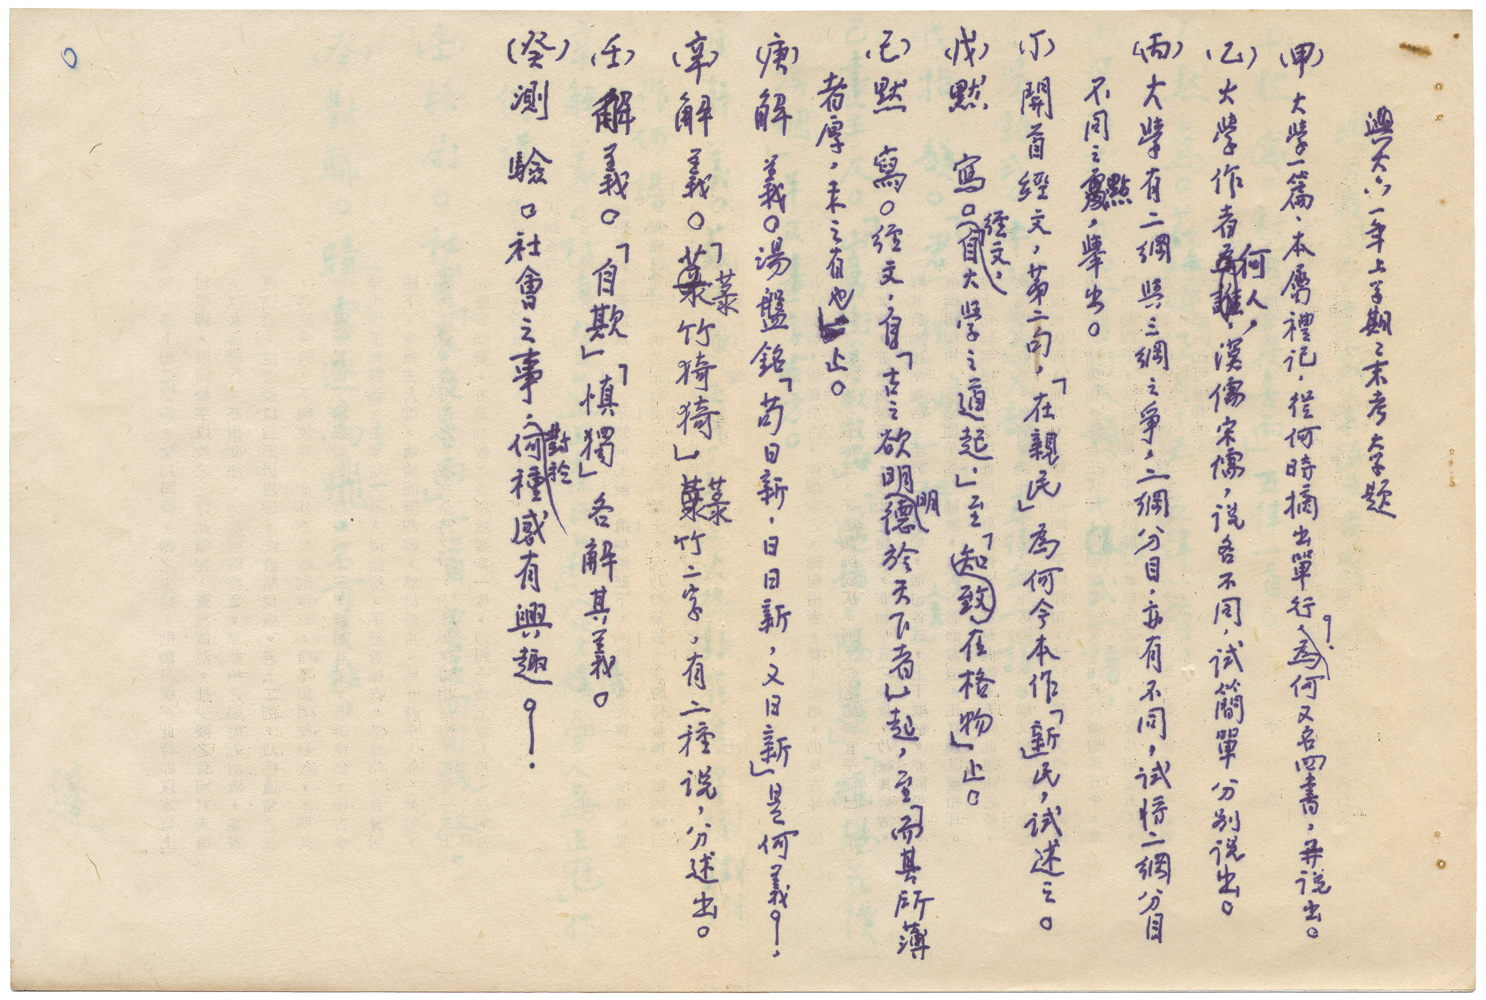 興大六一年上學期期末考大學題
（甲）大學一篇，本屬禮記，從何時摘出單行？為何又名四書，并說出。
（乙）大學作者何人，漢儒宋儒，說各不同，試簡單分別說出。
（丙）大學有二綱與三綱之爭，二綱分目，亦有不同，試將二綱分目
不同之點，舉出。
（丁）開首經文，第二句，「在親民」為何今本作「新民，試述之。
（戊）默寫。經文，自大學之道起，」至「知致在格物」止。
（己）默寫。經文，自「古之欲明明德於天下者」起，至「而其所薄
者厚，未之有也」止。
（庚）解義。湯盤銘「苟日新，日日新，又日新」是何義？
（辛）解義。「菉竹猗猗」菉竹二字，有二種說，分述出。
（壬）解義。「自欺」「慎獨」各解其義。
（癸）測驗。社會之事，對於何種感有興趣？